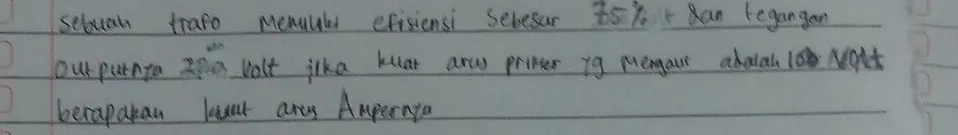 sebuah trafo Memiliki efisiensi sebesar 75% dan tegangan
outputnya volt jika kuat arus primer yg mengalir adalah Volt
berapakah kuat arus Ampernya